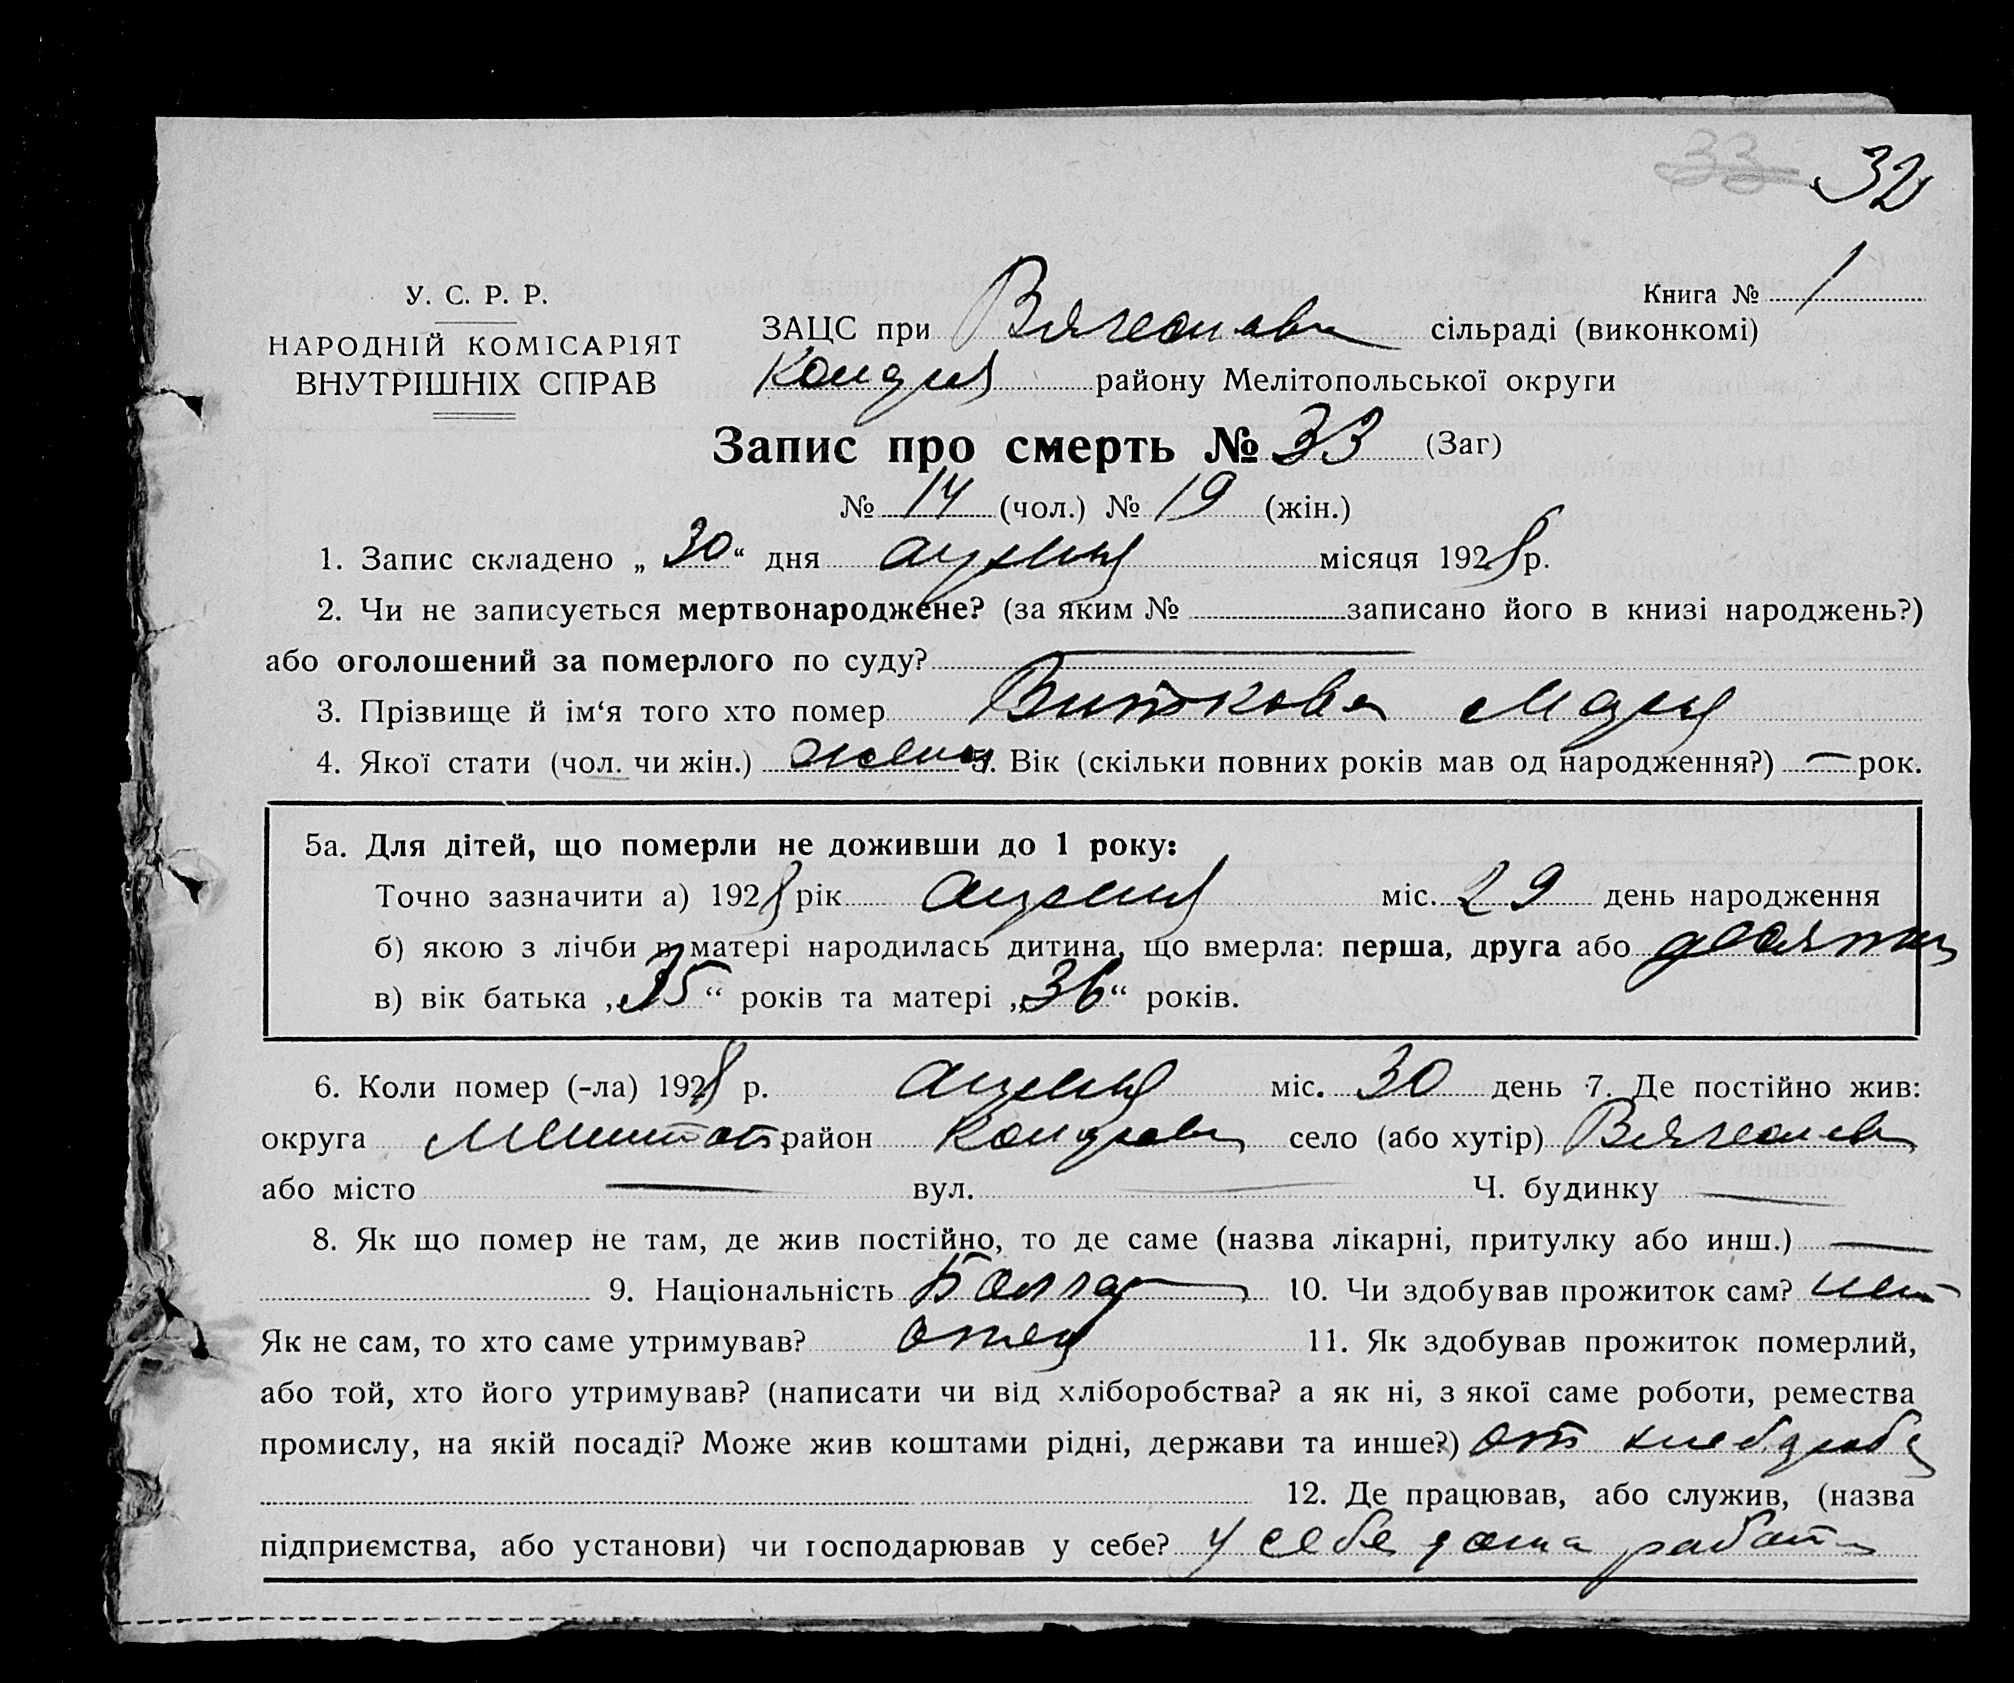 33 32
У. С. Р. Р.
НАРОДНІЙ КОМІСАРІЯТ
ВНУТРІШНІХ СПРАВ
Книга № 1
ЗАЦС при сільраді (виконкомі)
району Мелітопольської округи
Запис про смерть № 33 (Заг)
№ 14 (чол.) № 19 (жін.)
1. Запис складено „ 30 “ дня апреля місяця 1928 р.
2. Чи не записується мертвонароджене? (за яким № записано його в книзі народжень?)
або оголошений за померлого по суду? —
3. Прізвище й ім‘я того хто помер Виткова Мария
4. Якої стати (чол. чи жін.) 5. Вік (скільки повних років мав од народження?) — рок.
5а. Для дітей, що померли не доживши до 1 року:
Точно зазначити а) 1928 рік апреля міс. 29 день народження
б) якою з лічби в матері народилась дитина, що вмерла: перша, друга або десятая
в) вік батька „35“ років та матері „36“ років.
6. Коли помер (-ла) 1928 р. апреля міс. 30 день 7. Де постійно жив:
округа район село (або хутір)
або місто — вул. — Ч. будинку —
8. Як що помер не там, де жив постійно, то де саме (назва лікарні, притулку або инш.) —
9. Національність Болгар 10. Чи здобував прожиток сам? нет
Як не сам, то хто саме утримував? отец 11. Як здобував прожиток померлий,
або той, хто його утримував? (написати чи від хліборобства? а як ні, з якої саме роботи, ремества
промислу, на якій посаді? Може жив коштами рідні, держави та инше?) от
12. Де працював, або служив, (назва
підприємства, або установи) чи господарював у себе? у себе дома